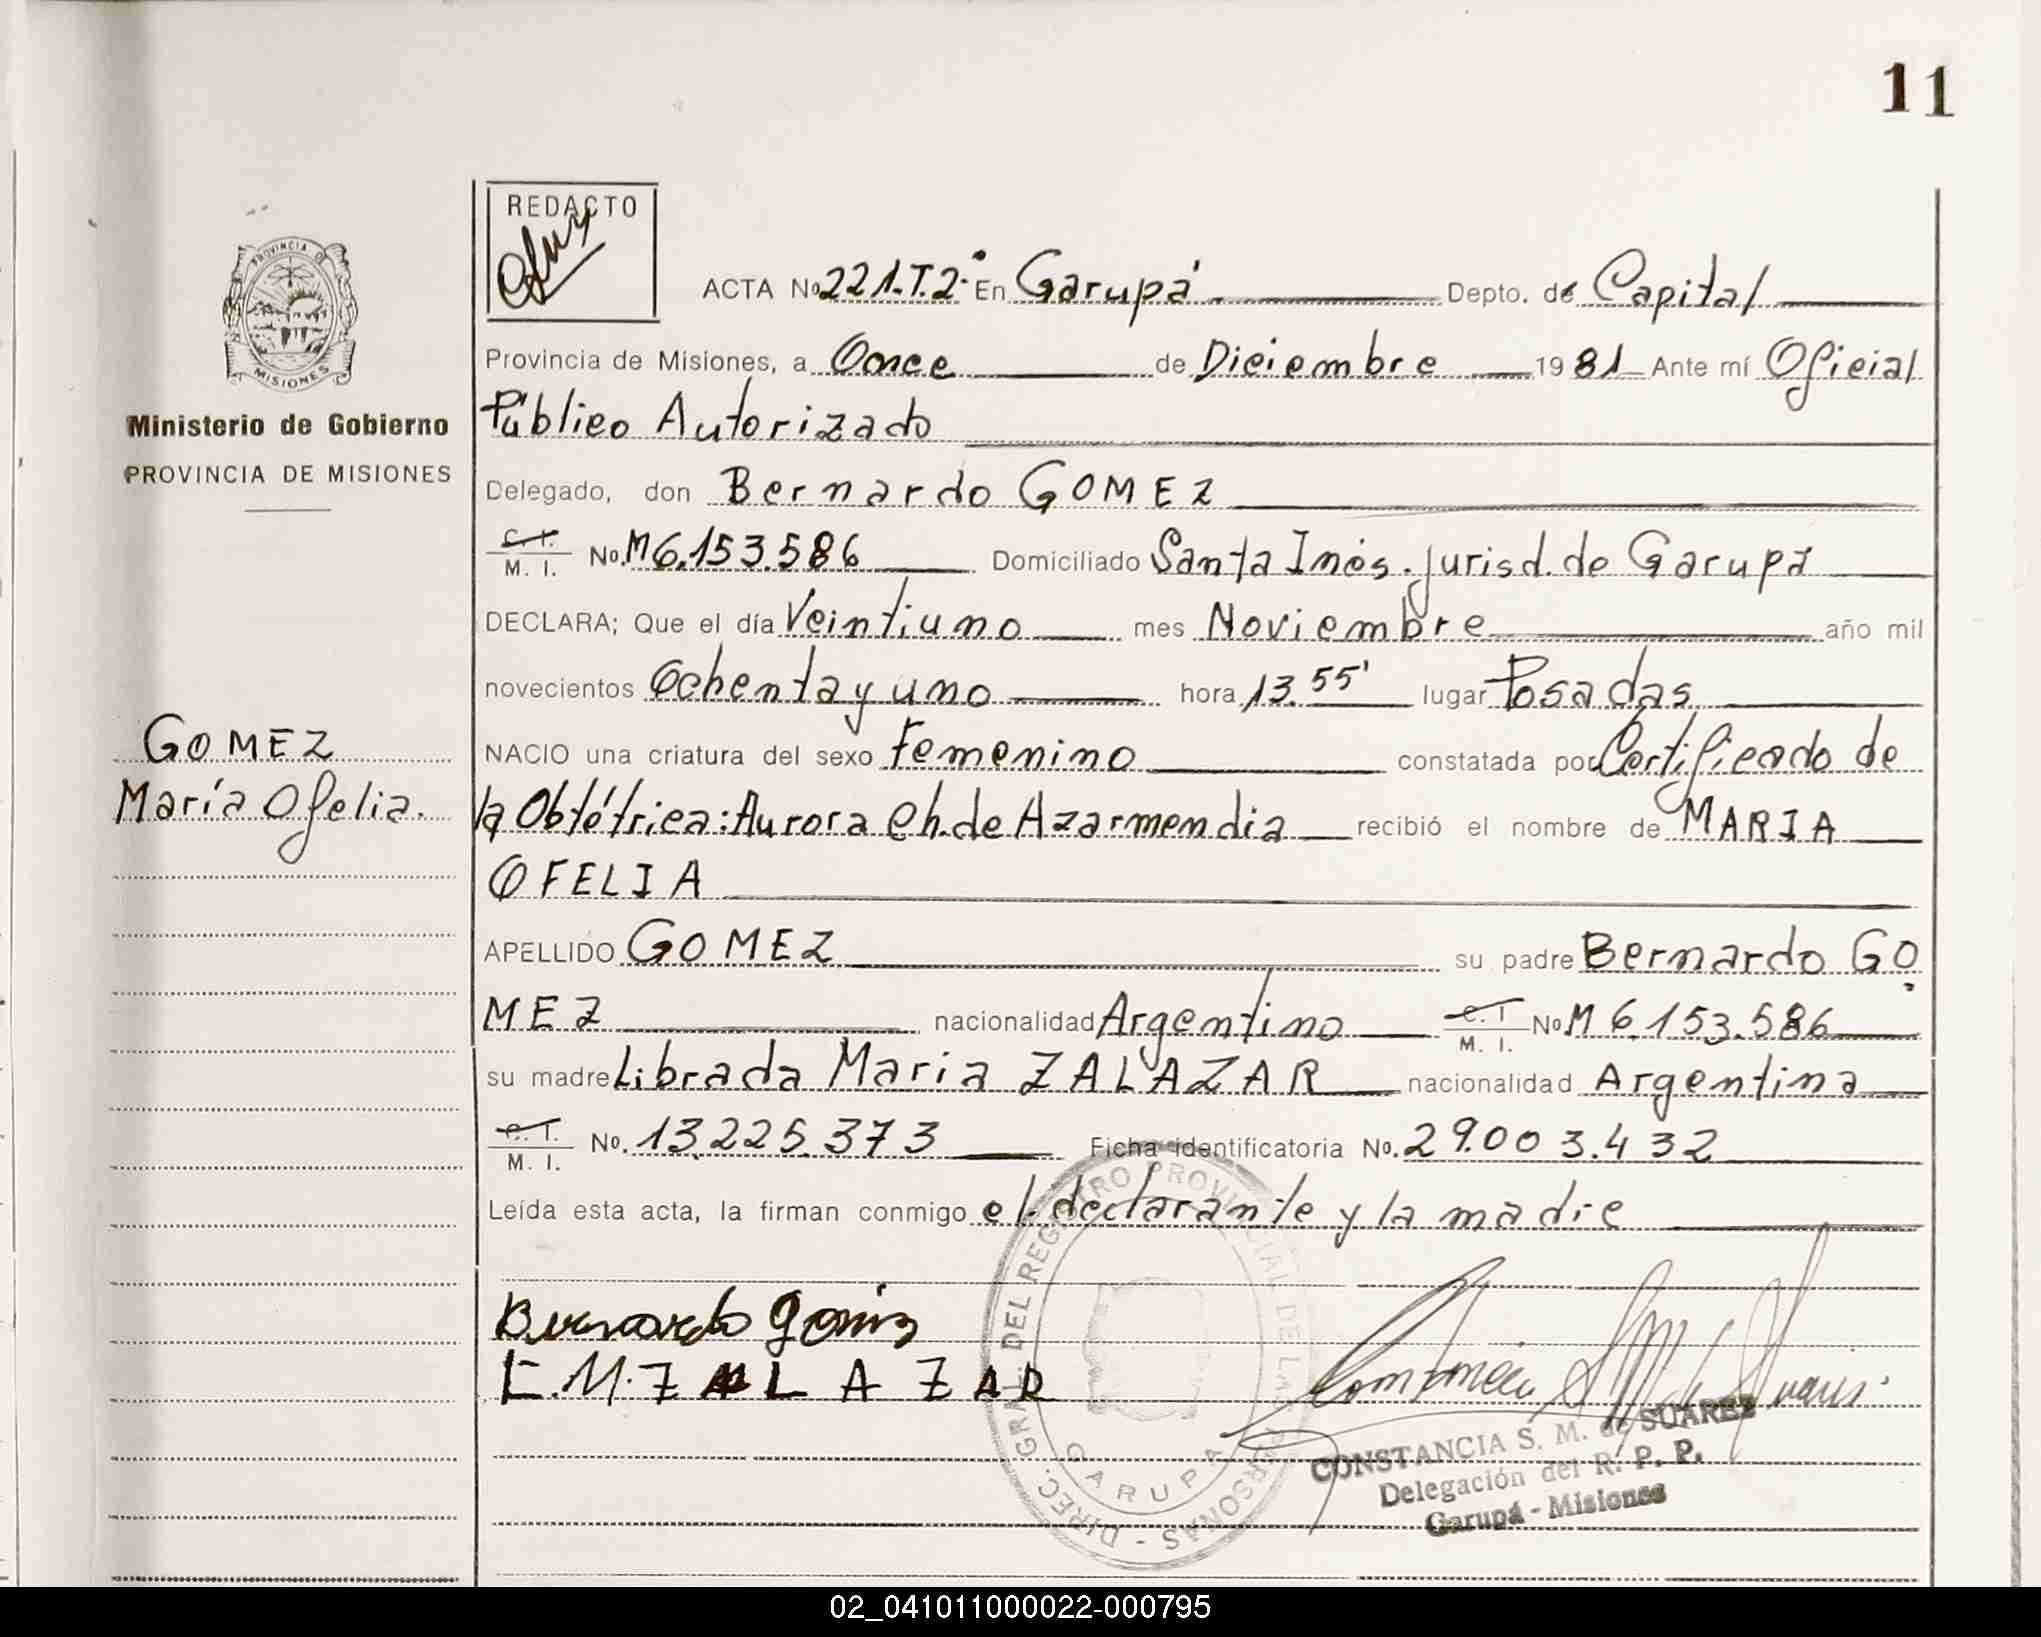 11
PROVINCIA DE
MISIONES
Ministerio de Gobierno
PROVINCIA DE MISIONES
GOMEZ
María Ofelia.
REDACTO
ACTA No 221.T.2º En Garupá Depto. de Capital
Provincia de Misiones, a Once de Diciembre 1981 Ante mí Oficial
Público Autorizado
Delegado, don Bernardo GOMEZ
C. I. M. I. No. M6.153.586 Domiciliado Santa Inés. jurisd. de Garupá
DECLARA; Que el día Veintiuno mes Noviembre año mil
novecientos Ochenta y uno hora 13.55' lugar Posadas
NACIO una criatura del sexo Femenino constatada por Certificado de
la Obtétrica: Aurora Ch. de Azarmendia recibió el nombre de MARIA
OFELIA
APELLIDO GOMEZ su padre Bernardo GO
MEZ nacionalidad Argentino C. I. M. I. No M 6.153.586
su madre Librada Maria ZALAZAR nacionalidad Argentina
C. I. M. I. No. 13.225.373 Ficha identificatoria No. 29.003.432
Leída esta acta, la firman conmigo el declarante y la madre
Bernardo Gomez
L.M.ZALAZAR
DIREC. GRAL. DEL REGISTRO PROVINCIAL DE LAS PERSONAS -
GARUPA
CONSTANCIA S. M. de SUAREZ
Delegación del R. P. P.
Garupá - Misiones
02_041011000022-000795